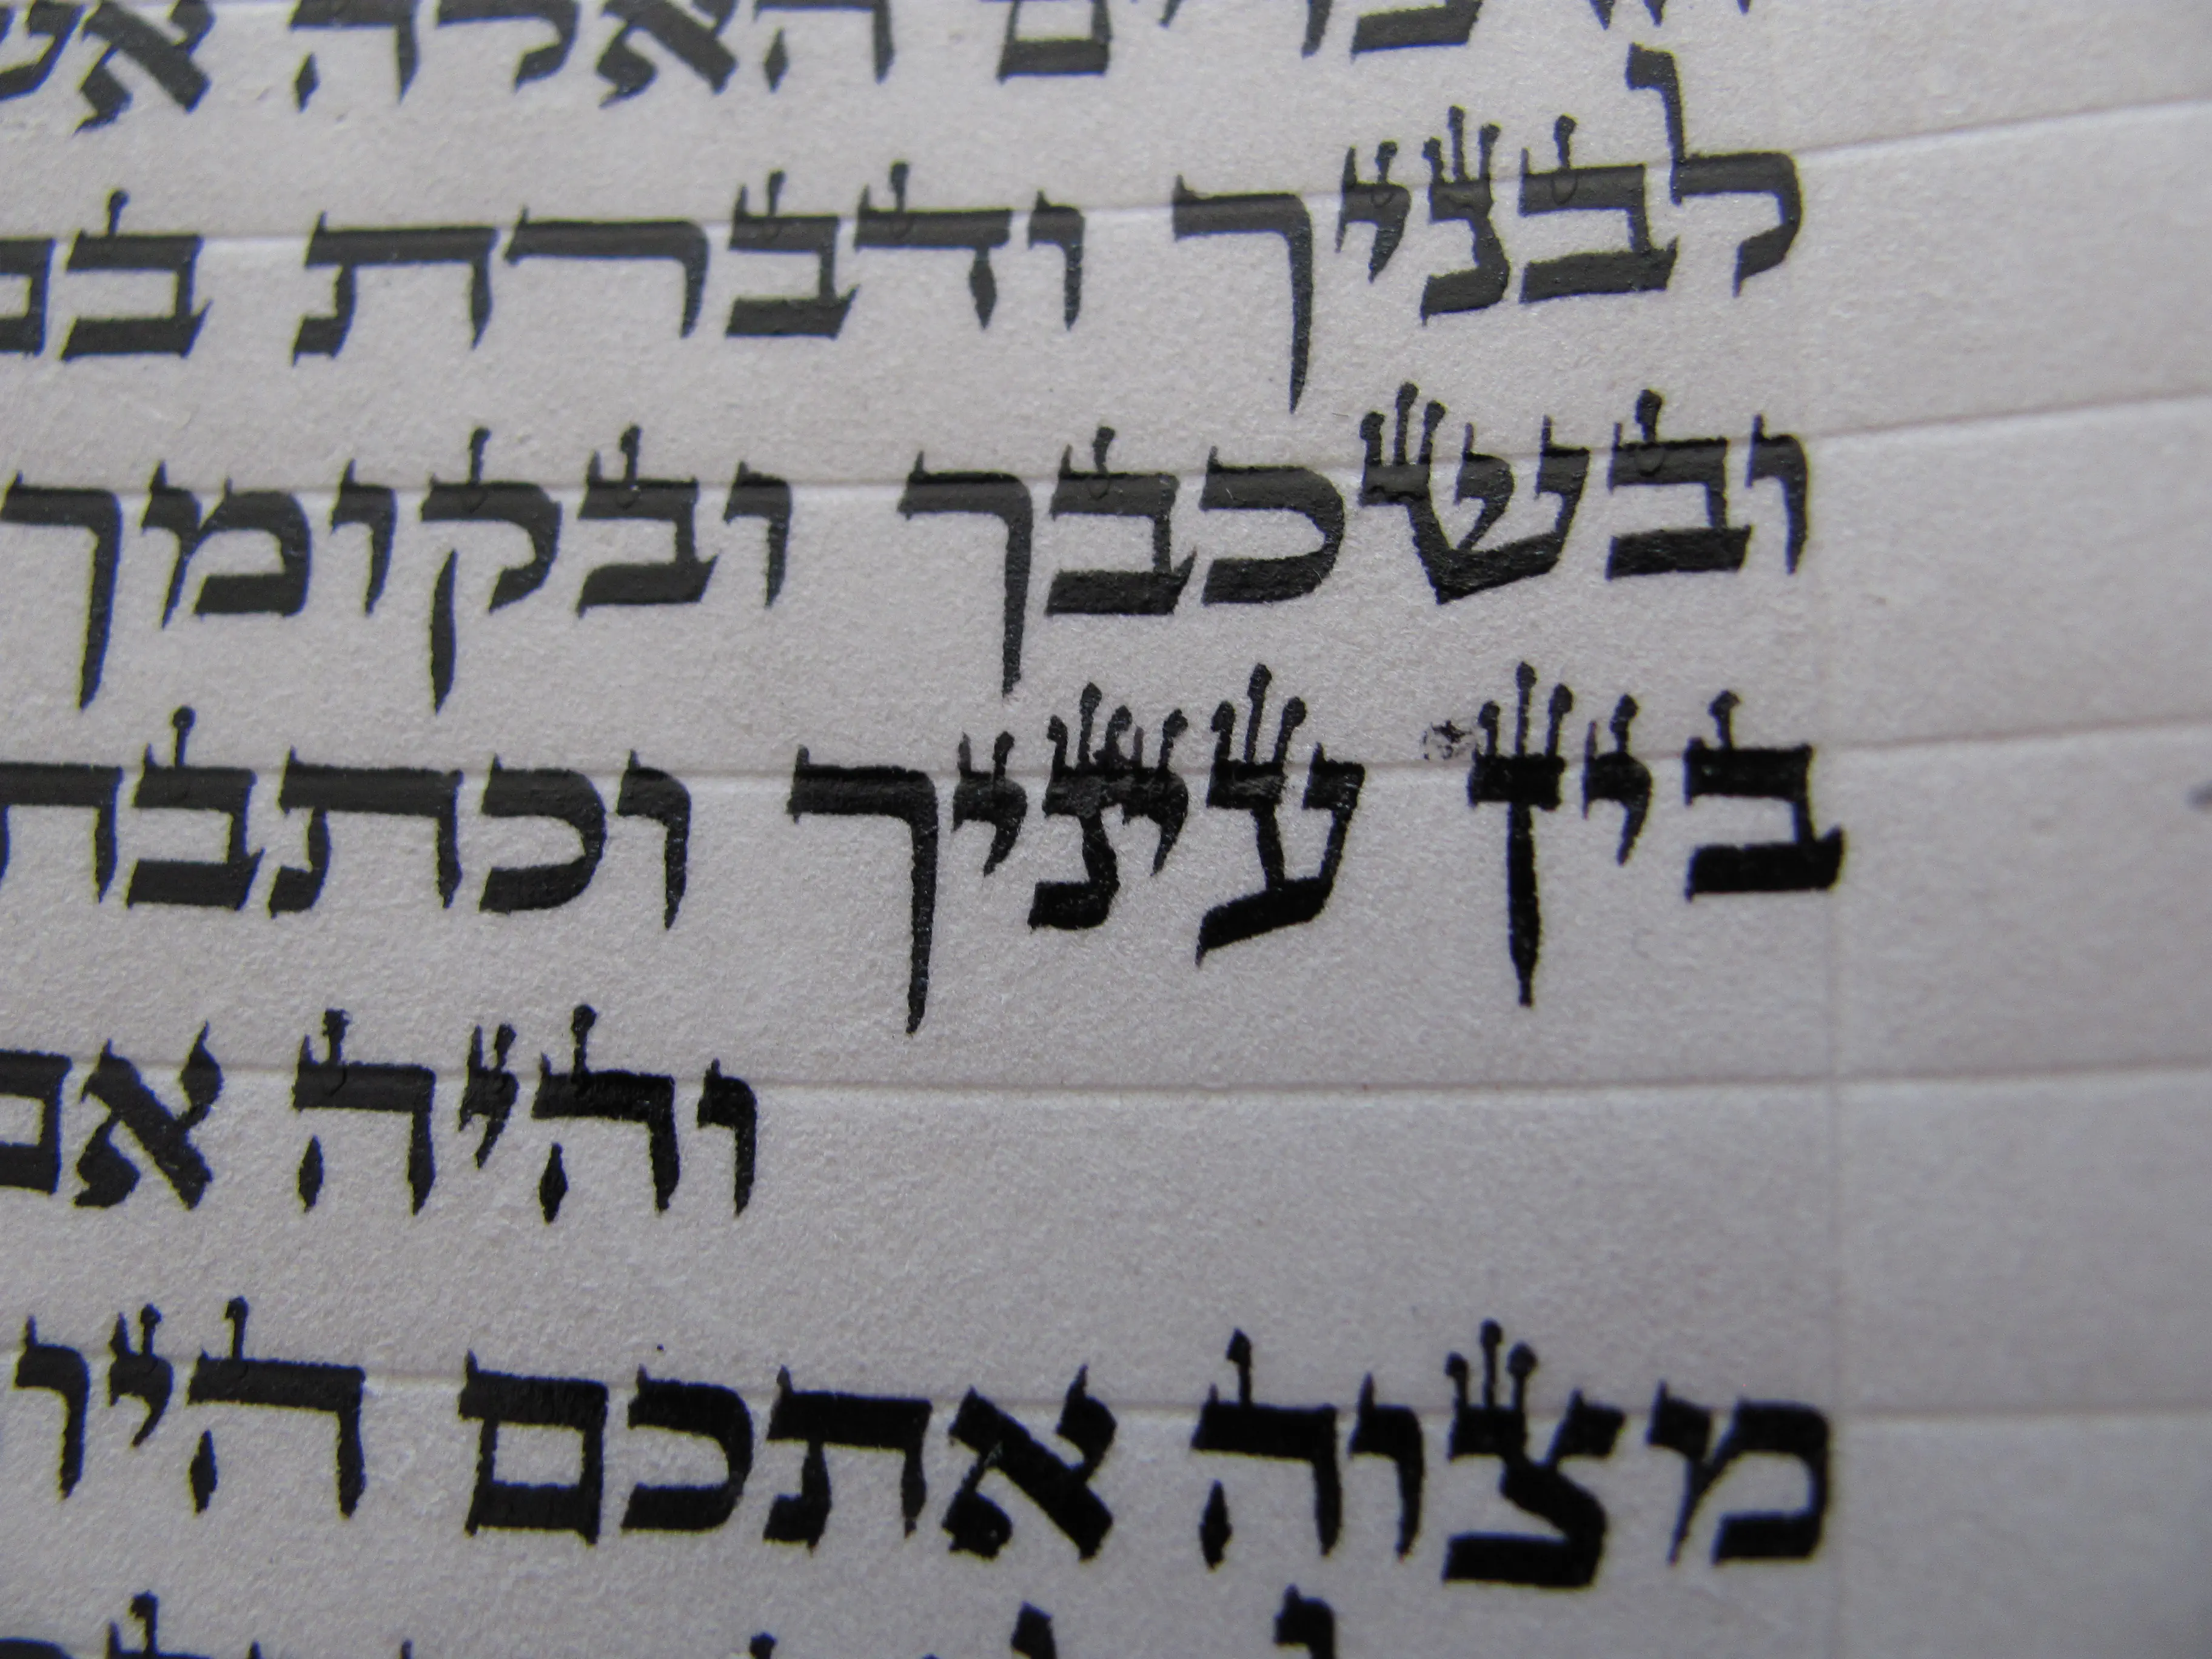 הדברים האלה
לבניך ודברת
ובשכבך ובקומך
בין עיניך וכתבת
והיה
מצוה אתכם היו